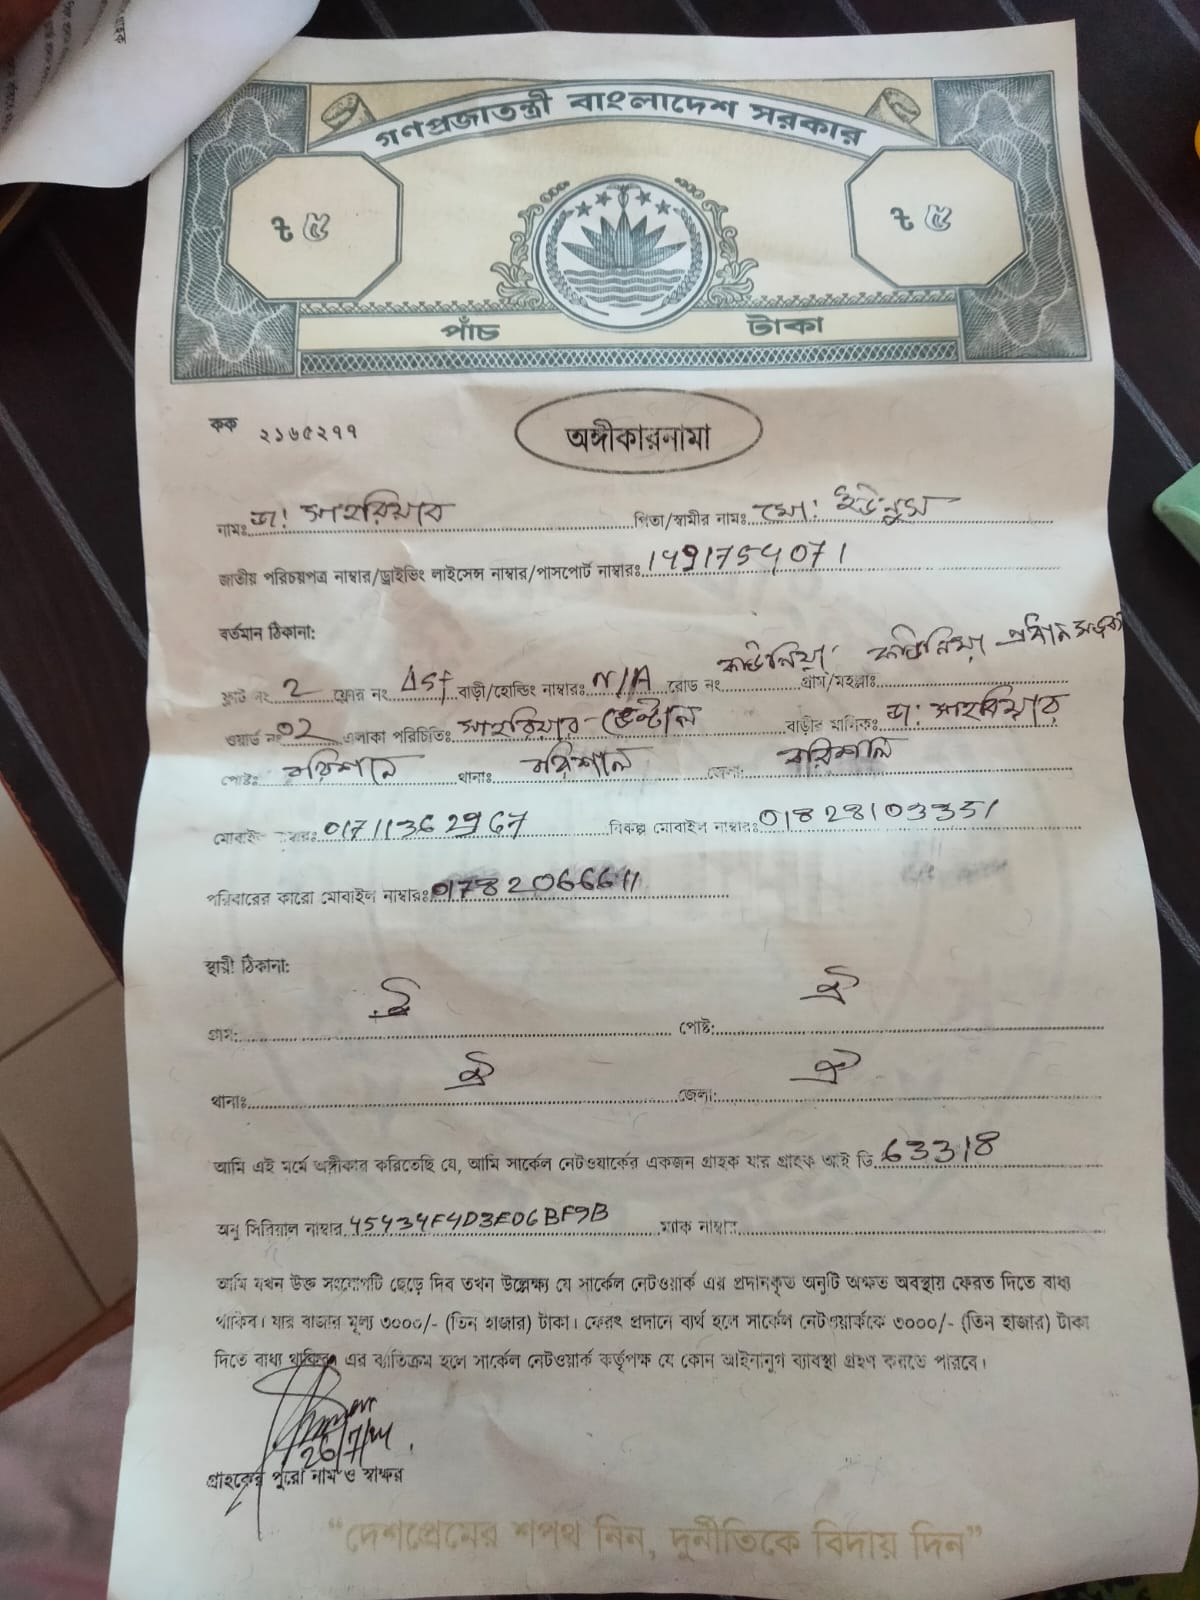 গণপ্রজাতন্ত্রী বাংলাদেশ সরকার
৳ ৫ ৳ ৫
পাঁচ টাকা
কক ২১৬৫২৭৭
অঙ্গীকারনামা
নামঃ ডা: সাহরিয়ার পিতা/স্বামীর নামঃ মো: ইউনুস
জাতীয় পরিচয়পত্র নাম্বার/ড্রাইভিং লাইসেন্স নাম্বার/পাসপোর্ট নাম্বারঃ 1491754071
বর্তমান ঠিকানা:
ফ্লাট নং 2 ফ্লোর নং 1st বাড়ী/হোল্ডিং নাম্বারঃ N/A রোড নং কাউনিয়া গ্রাম/মহল্লাঃ কাউনিয়া প্রধান সড়ক
ওয়ার্ড নং 02 এলাকা পরিচিতিঃ সাহরিয়ার ডেন্টাল বাড়ীর মালিকঃ ডা: সাহরিয়ার
পোষ্টঃ বরিশাল থানাঃ বরিশাল জেলা: বরিশাল
মোবাইল নাম্বারঃ 01711362967 বিকল্প মোবাইল নাম্বারঃ 01828103351
পরিবারের কারো মোবাইল নাম্বারঃ 01782066611
স্থায়ী ঠিকানা:
গ্রাম: ঐ পোষ্ট: ঐ
থানাঃ ঐ জেলা: ঐ
আমি এই মর্মে অঙ্গীকার করিতেছি যে, আমি সার্কেল নেটওয়ার্কের একজন গ্রাহক যার গ্রাহক আই ডি 63318
অনু সিরিয়াল নাম্বার 45434F4D3E06BF9B ম্যাক নাম্বার
আমি যখন উক্ত সংযোগটি ছেড়ে দিব তখন উল্লেক্ষ্য যে সার্কেল নেটওয়ার্ক এর প্রদানকৃত অনুটি অক্ষত অবস্থায় ফেরত দিতে বাধ্য
থাকিব। যার বাজার মূল্য ৩০০০/- (তিন হাজার) টাকা। ফেরৎ প্রদানে ব্যর্থ হলে সার্কেল নেটওয়ার্ককে ৩০০০/- (তিন হাজার) টাকা
দিতে বাধ্য থাকিব। এর ব্যতিক্রম হলে সার্কেল নেটওয়ার্ক কর্তৃপক্ষ যে কোন আইনানুগ ব্যাবস্থা গ্রহণ করতে পারবে।
26/7/24
গ্রাহকের পুরো নাম ও স্বাক্ষর
“দেশপ্রেমের শপথ নিন, দুর্নীতিকে বিদায় দিন”